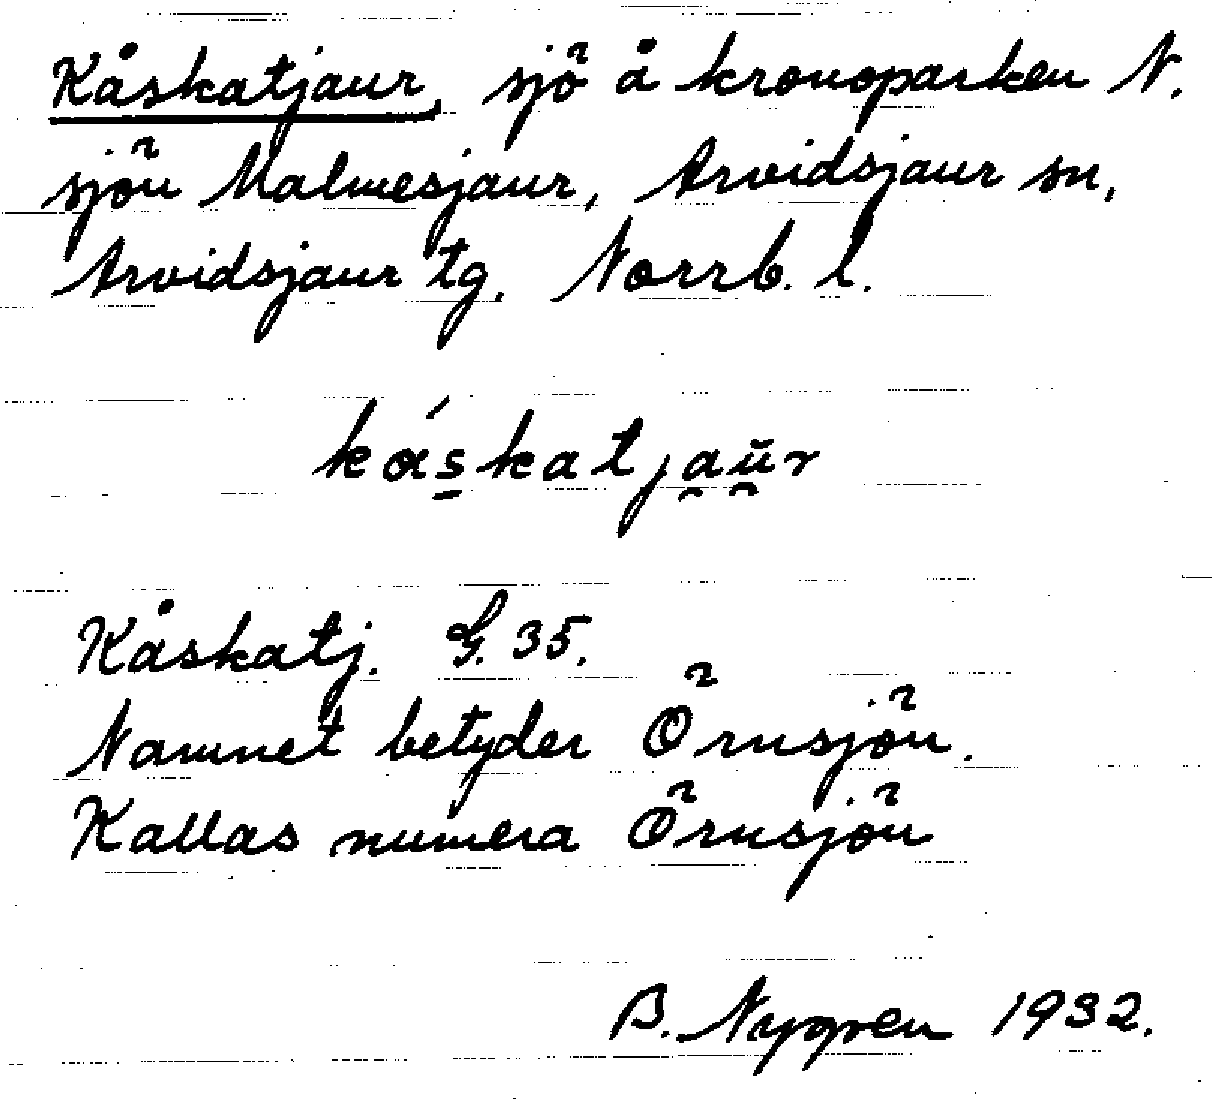 Kåskatjaur, sjö å kronoparken N.
sjön Malmesjaur, Arvidsjaur sn,
Arvidsjaur tg. Norrb. l.
káskatjaur
Kåskatj. G. 35.
Namnet betyder Örnsjön.
Kallas numera Örnsjön
B. Nygren 1932.